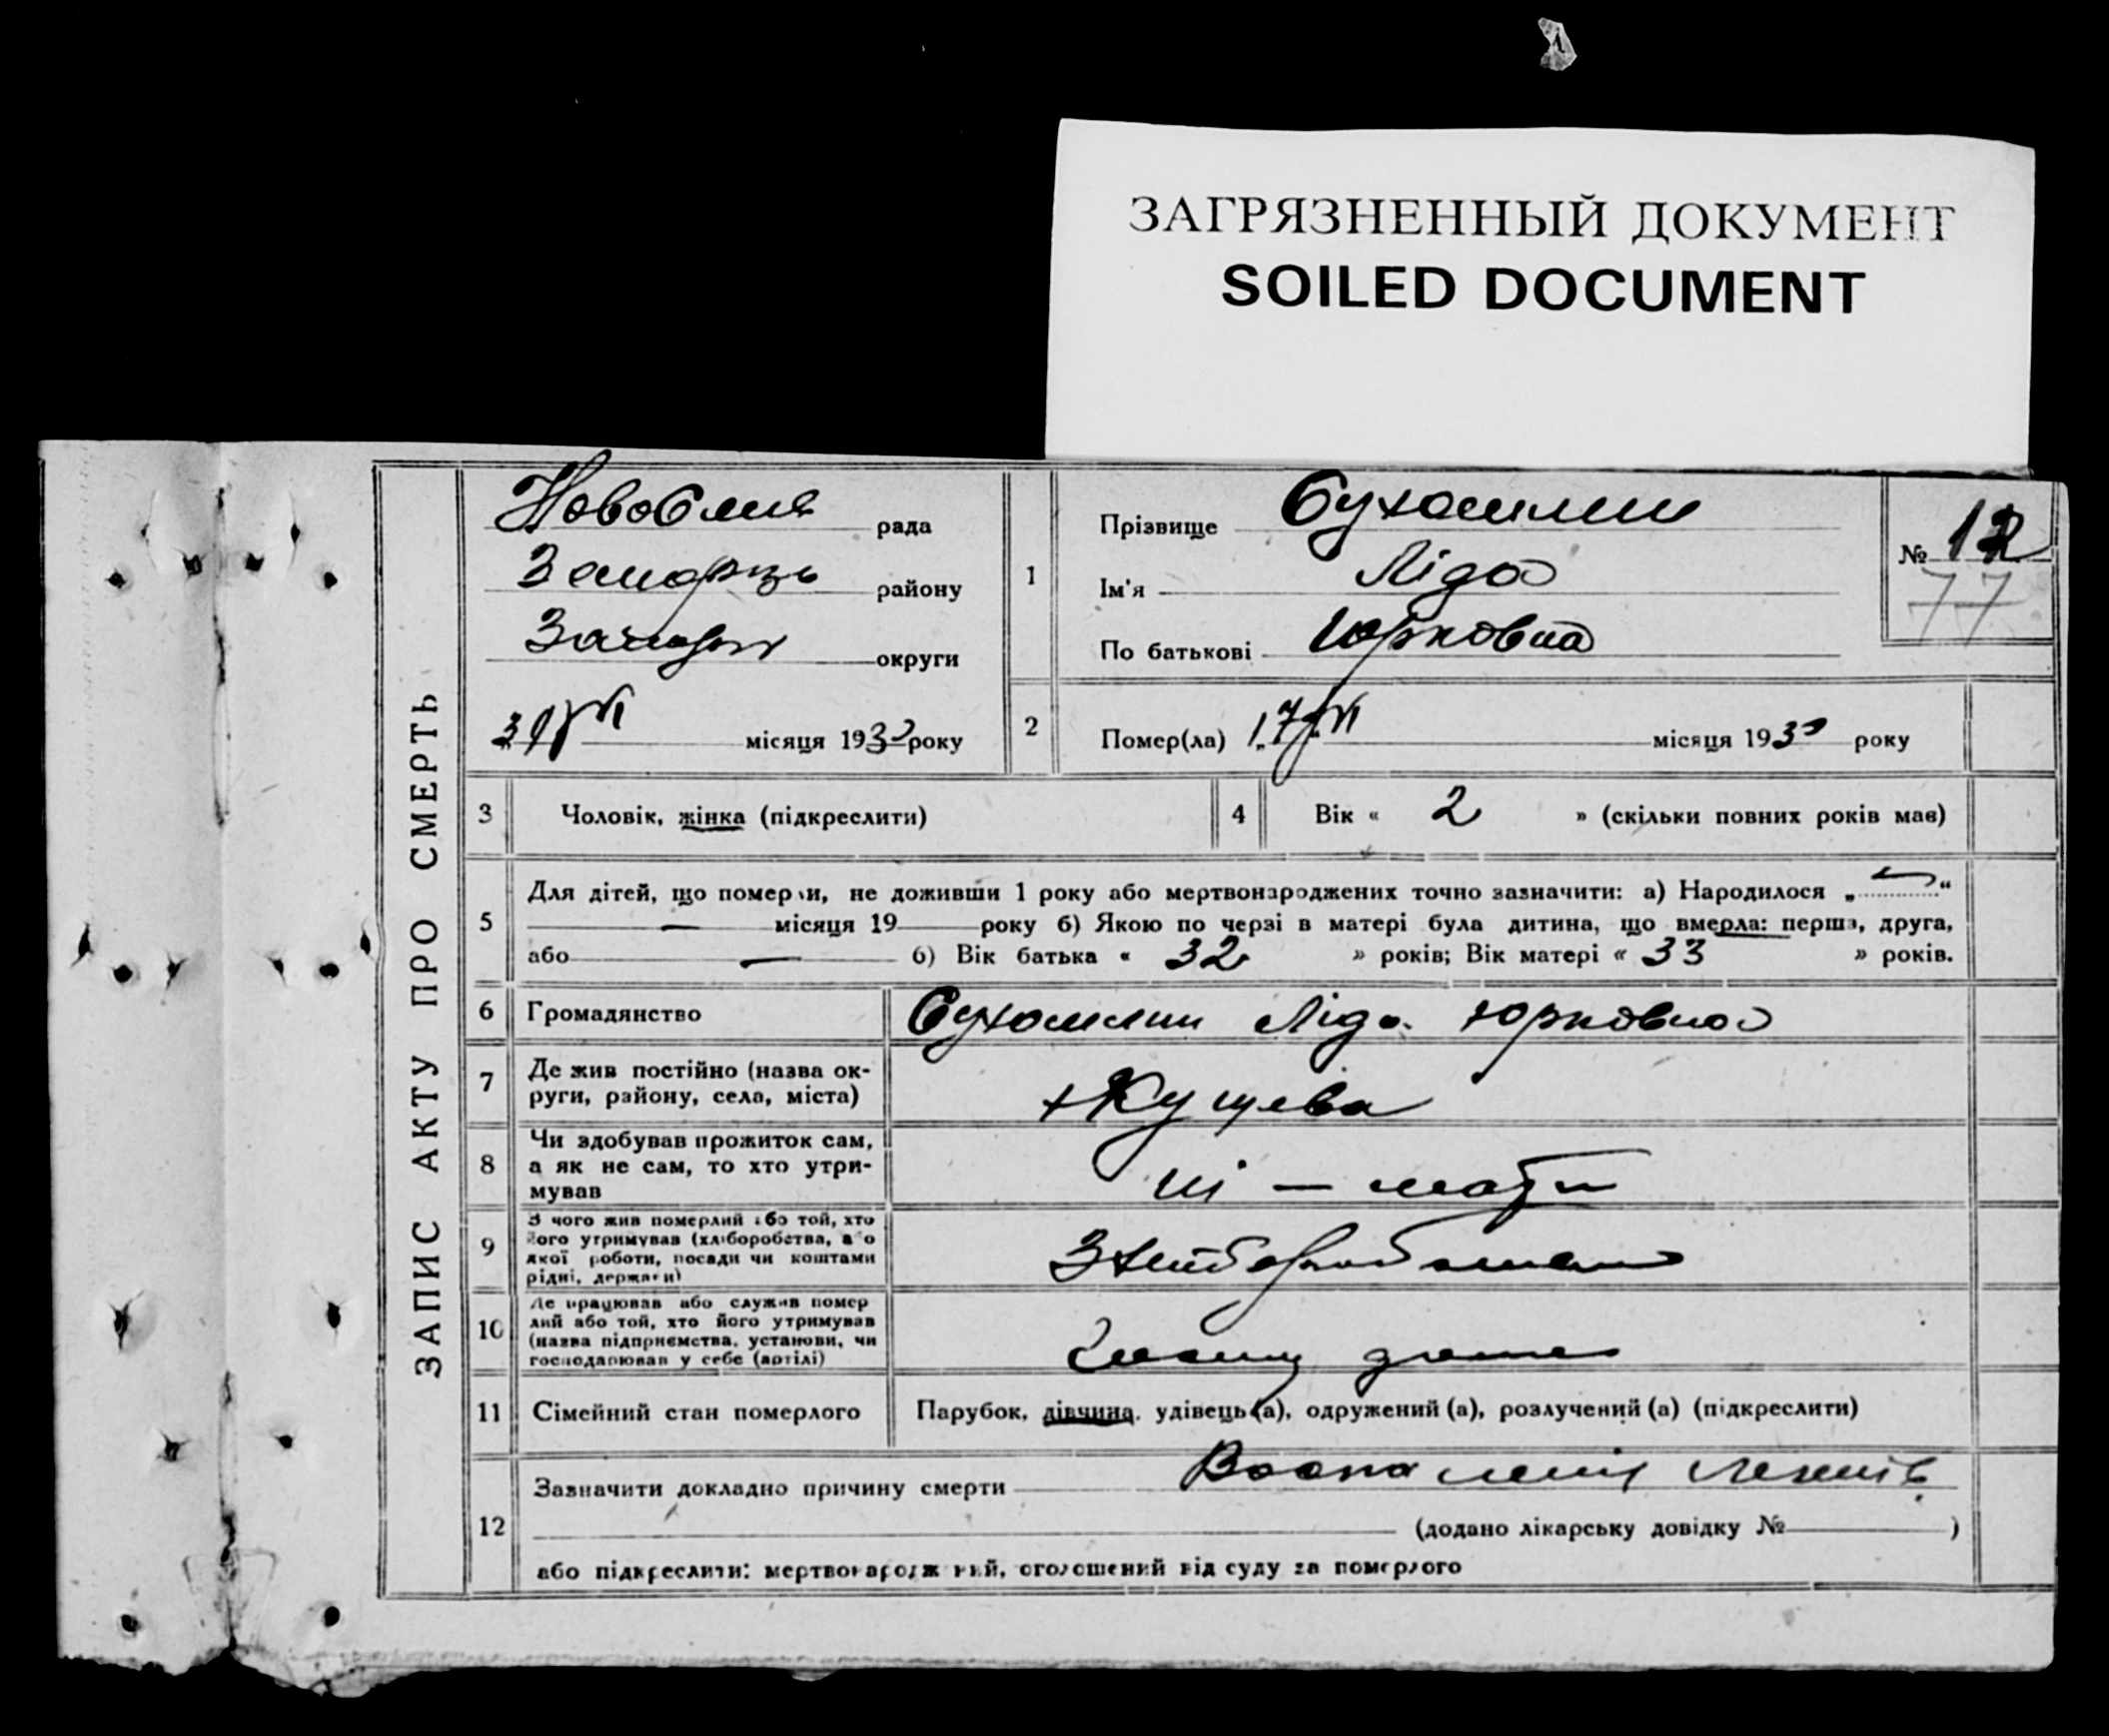 ЗАГРЯЗНЕННЫЙ ДОКУМЕНТ
SOILED DOCUMENT
ЗАПИС АКТУ ПРО СМЕРТЬ
рада
району
округи
місяця 1930 року
1
Прізвище Сухомлин
Ім'я Ліда
По батькові Юрковна
№ 12
77
2
Помер(ла) 17/VI місяця 1930 року
3
Чоловік, жінка (підкреслити)
4
Вік « 2 » (скільки повних років мав)
5
Для дітей, що померли, не доживши 1 року або мертвонароджених точно зазначити: а) Народилося „ — “
— місяця 19 року б) Якою по черзі в матері була дитина, що вмерла: перша, друга,
або — б) Вік батька « 32 » років; Вік матері « 33 » років.
6
Громадянство
Сухомлин Ліда Юрковна
7
Де жив постійно (назва ок-
руги, району, села, міста)
х Кущева
8
Чи здобував прожиток сам,
а як не сам, то хто утри-
мував
ні — мати
9
З чого жив померлий або той, хто
його утримував (хліборобства, або
якої роботи, посади чи коштами
рідні, держави)
10
Де працював або служив помер
лий або той, хто його утримував
(назва підприємства, установи, чи
господарював у себе (артілі)
11
Сімейний стан померлого
Парубок, дівчина, удівець (а), одружений (а), розлучений (а) (підкреслити)
12
Зазначити докладно причину смерти Воспаленія легенів
(додано лікарську довідку № )
або підкреслити: мертвонароджений, оголошений від суду за померлого